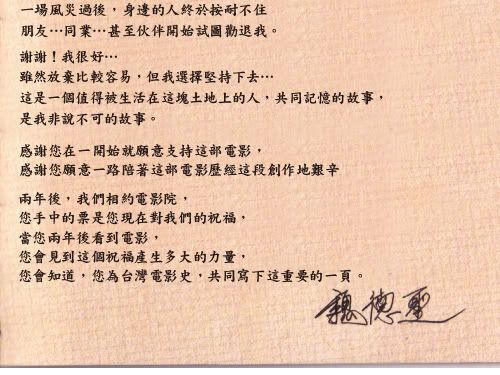 一場風災過後，身邊的人終於按耐不住
朋友…同業…甚至伙伴開始試圖勸退我。
謝謝！我很好…
雖然放棄比較容易，但我選擇堅持下去…
這是一個值得被生活在這塊土地上的人，共同記憶的故事，
是我非說不可的故事。
感謝您在一開始就願意支持這部電影，
感謝您願意一路陪著這部電影歷經這段創作地艱辛
兩年後，我們相約電影院，
您手中的票是您現在對我們的祝福，
當您兩年後看到電影，
您會見到這個祝福產生多大的力量，
您會知道，您為台灣電影史，共同寫下這重要的一頁。
魏德聖